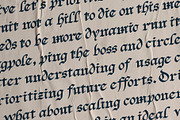 ve let's prioritize
uit not a hill to die on this me
eds to be more dynamic run it
gpole, ping the boss and circle
ter understanding of usage c
ioritizing future efforts. Dri
what about scaling component
is an ideal v